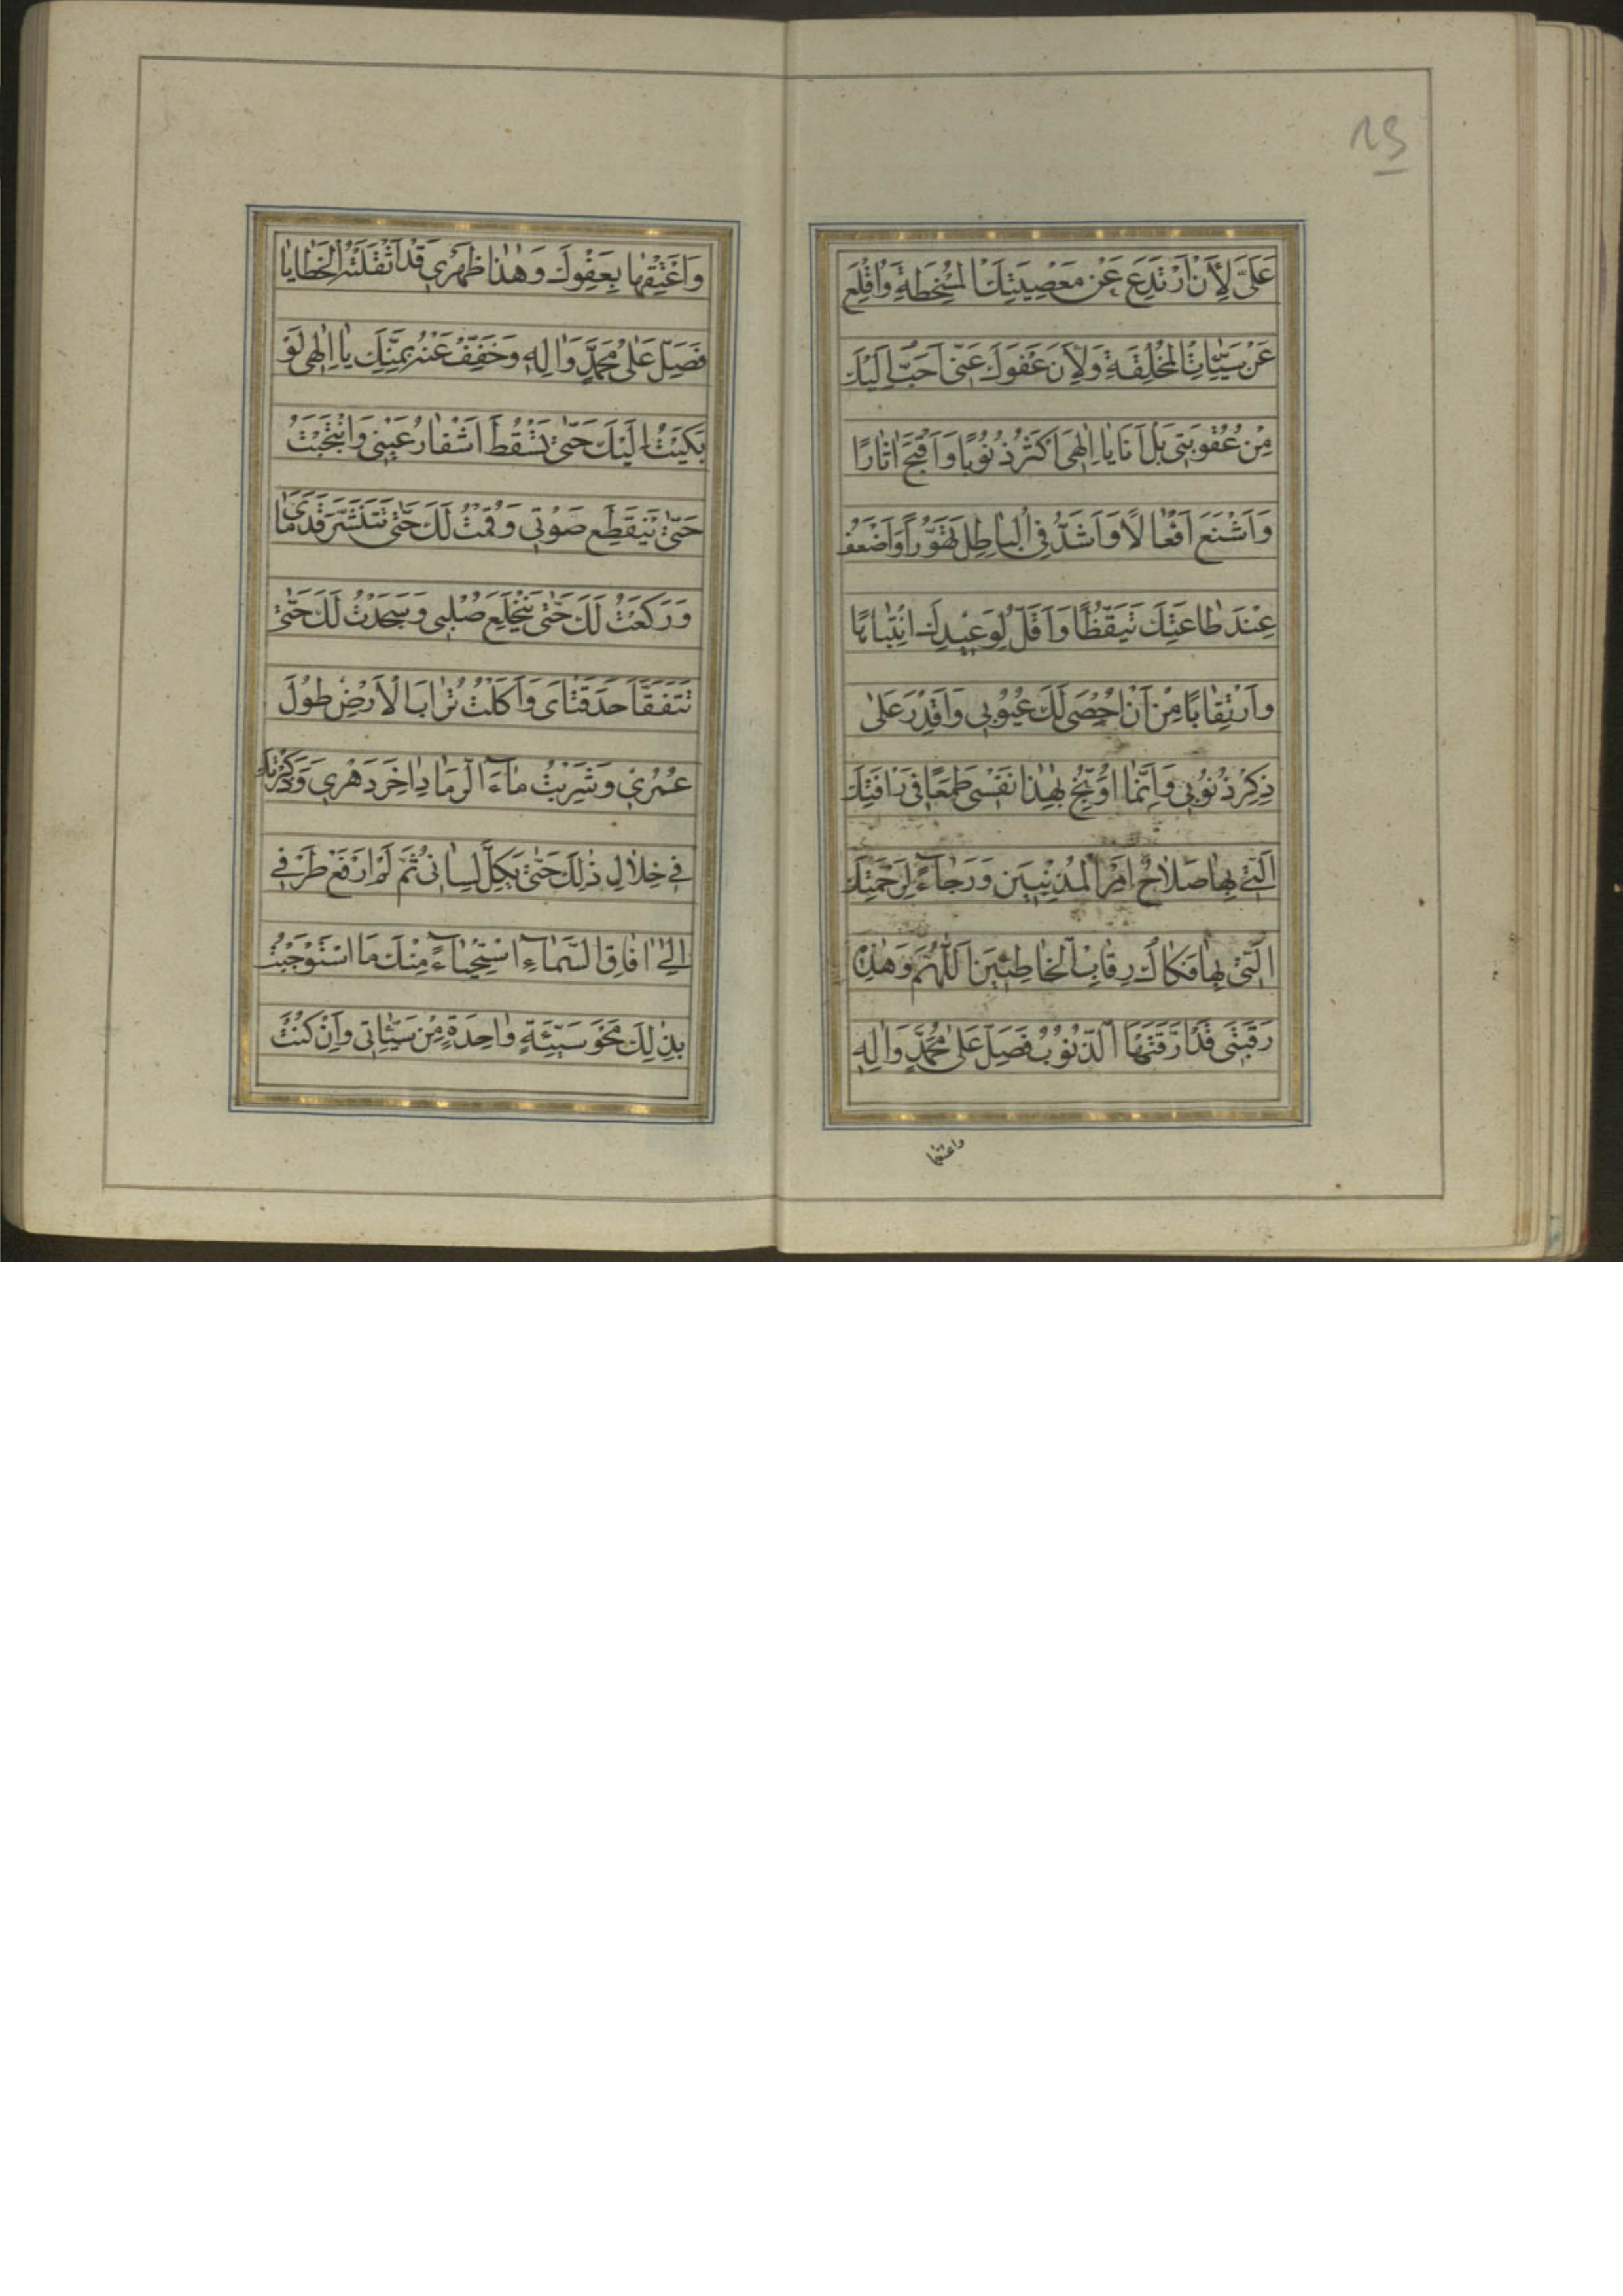 23
عَلَيَّ لِأَنْ أَرْتَدِعَ عَنْ مَعْصِيَتِكَ الْمُسْخِطَةِ وَأُقْلِعَ
عَنْ سَيِّئَاتِيَ الْمُخْلِقَةِ وَلِأَنَّ عَفْوَكَ عَنّى اَحَبُّ اِلَيْكَ
مِنْ عُقُوبَتى بَلْ اَنَا يٰا اِلٰهى اَكْثَرُ ذُنُوبًا وَاَقْبَحُ اٰثٰارًا
وَاَشْنَعُ اَفْعٰالًا وَاَشَدُّ فِى الْبٰاطِلِ تَهَوُّرًا وَاَضْعَفُ
عِنْدَ طٰاعَتِكَ تَيَقُّظًا وَاَقَلُّ لِوَعيدِكَ انْتِبٰاهًا
وَارْتِقٰابًا مِنْ اَنْ اُحْصِىَ لَكَ عُيُوبى وَاَقْدِرَ عَلىٰ
ذِكْرِ ذُنُوبى وَاِنَّمٰا اُوَبِّخُ بِهٰذٰا نَفْسى طَمَعًا فى رَاْفَتِكَ
الَّتى بِهٰا صَلٰاحُ اَمْرِ الْمُذْنِبينَ وَرَجٰاءً لِرَحْمَتِكَ
الَّتى بِهٰا فَكٰاكُ رِقٰابِ الْخٰاطِئينَ اَللّٰهُمَّ وَهٰذِهِ
رَقَبَتى قَدْ اَرَقَّتْهَا الذُّنُوبُ فَصَلِّ عَلىٰ مُحَمَّدٍ وَاٰلِهِ
واعتقها
وَاَعْتِقْهٰا بِعَفْوِكَ وَهٰذٰا ظَهْرى قَدْ اَثْقَلَتْهُ الْخَطٰايٰا
فَصَلِّ عَلىٰ مُحَمَّدٍ وَاٰلِهِ وَخَفِّفْ عَنْهُ بِمَنِّكَ يٰا اِلٰهى لَوْ
بَكَيْتُ اِلَيْكَ حَتّىٰ تَسْقُطَ اَشْفٰارُ عَيْنى وَانْتَحَبْتُ
حَتّىٰ يَنْقَطِعَ صَوْتى وَقُمْتُ لَكَ حَتّىٰ تَتَنَشَّرَ قَدَمٰاىَ
وَرَكَعْتُ لَكَ حَتّىٰ يَنْخَلِعَ صُلْبى وَسَجَدْتُ لَكَ حَتّىٰ
تَتَفَقَّاَ حَدَقَتٰاىَ وَاَكَلْتُ تُرٰابَ الْاَرْضِ طُولَ
عُمْرى وَشَرِبْتُ مٰاءَ الرَّمٰادِ اٰخِرَ دَهْرى وَذَكَرْتُكَ
فى خِلٰالِ ذٰلِكَ حَتّىٰ يَكِلَّ لِسٰانى ثُمَّ لَمْ اَرْفَعْ طَرْفى
اِلىٰ اٰفٰاقِ السَّمٰاءِ اسْتِحْيٰاءً مِنْكَ مَا اسْتَوْجَبْتُ
بِذٰلِكَ مَحْوَ سَيِّئَةٍ وٰاحِدَةٍ مِنْ سَيِّئٰاتى وَاِنْ كُنْتَ